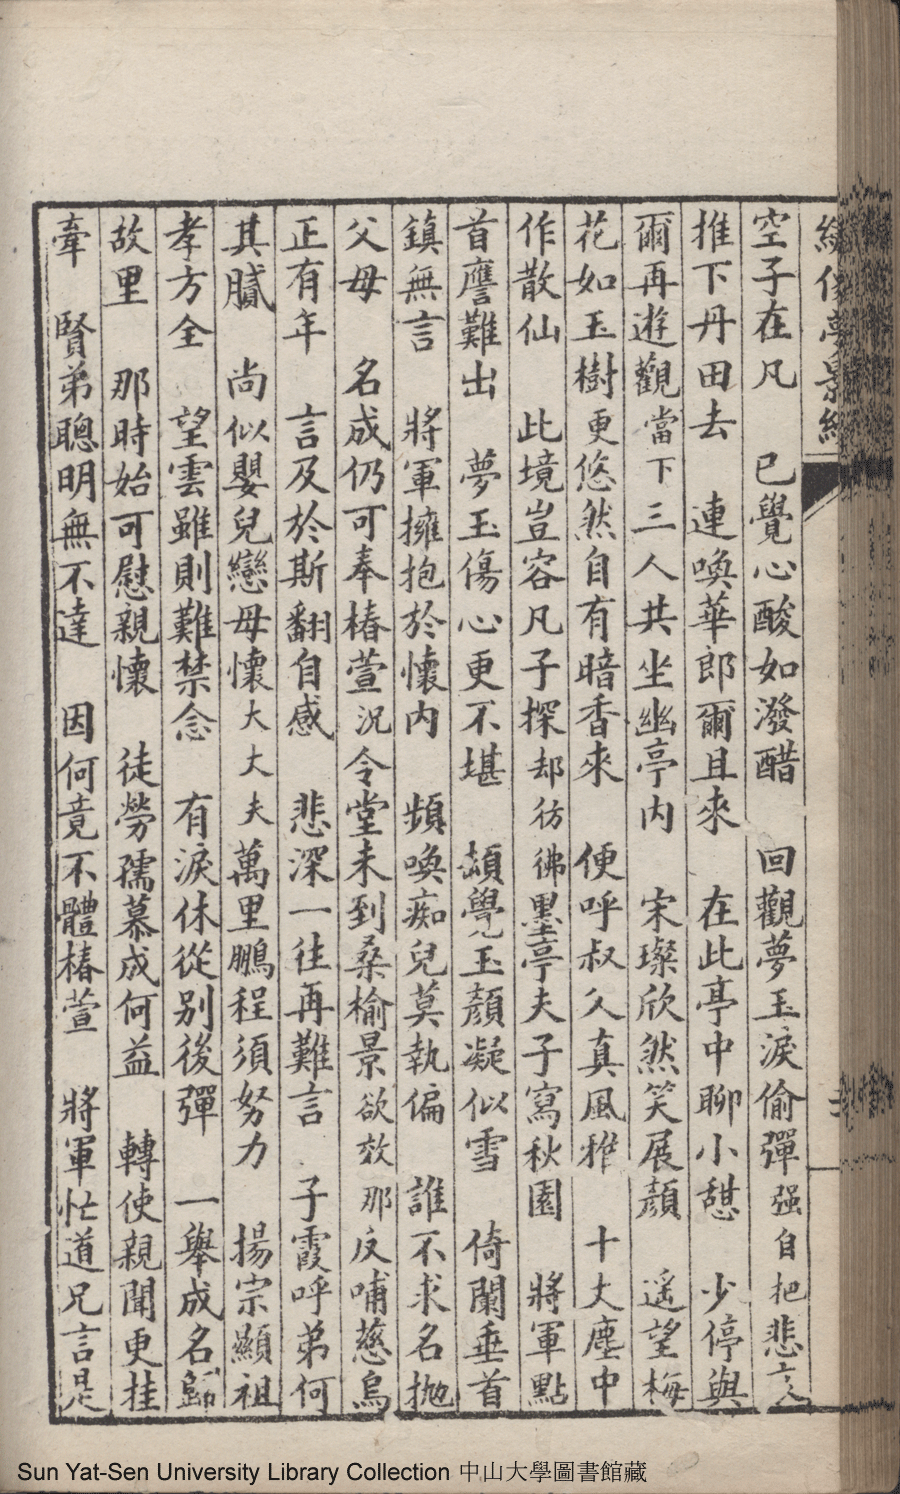 繪像夢影緣
空子在凡　已覺心酸如潑醋　回觀夢玉淚偷彈强自把悲
推下丹田去　連喚華郎爾且來　在此亭中聊小憇　少停與
爾再遊觀當下三人共坐幽亭內　宋璨欣然笑展顏　遥望梅
花如玉樹更悠然自有暗香來　便呼叔父真風雅　十丈塵中
作散仙　此境豈容凡子探却彷彿墨亭夫子寫秋園　將軍點
首譍難出　夢玉傷心更不堪　頓覺玉顏凝似雪　倚闌垂首
鎮無言　將軍擁抱於懷內　頻喚痴兒莫執偏　誰不求名拋
父母　名成仍可奉椿萱况令堂未到桑榆景欲效那反哺慈烏
正有年　言及於斯翻自感　悲深一往再難言　子霞呼弟何
其膩　尚似嬰兒戀母懷大丈夫萬里鵬程須努力　揚宗顯祖
孝方全　望雲雖則難禁念　有淚休從別後彈　一舉成名歸
故里　那時始可慰親懷　徒勞孺慕成何益　轉使親聞更挂
牽　賢弟聰明無不達　因何竟不體椿萱　將軍忙道兄言是
Sun Yat-Sen University Library Collection 中山大學圖書館藏